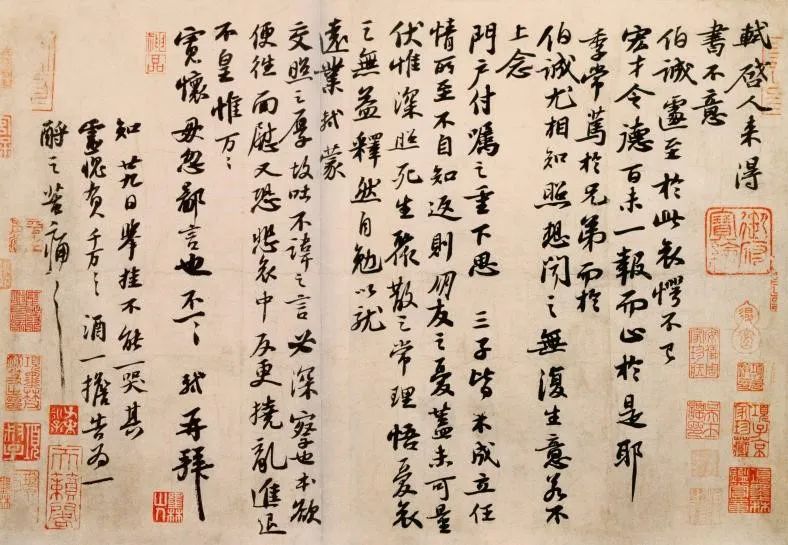 軾啓人來得
書不意
伯誠遽至於此哀愕不已
宏才令德百未一報而止於是耶
季常篤於兄弟而於
伯誠尤相知照想聞之無復生意若不
上念
門户付囑之重下思三子皆未成立任
情所至不自知返則朋友之憂蓋未可量
伏惟深照死生聚散之常理悟憂哀
之無益釋然自勉以就
遠業軾蒙
交照之厚故吐不諱之言必深察也本欲
便往面慰又恐悲哀中反更撓亂進退
不皇惟万万
寬懷毋忽鄙言也不一一軾再拜
知廿九日舉挂不能一哭其
靈愧負千万千万酒一擔告為一
酹之苦痛苦痛
御府寶繪
項子京家珍藏
天籟閣